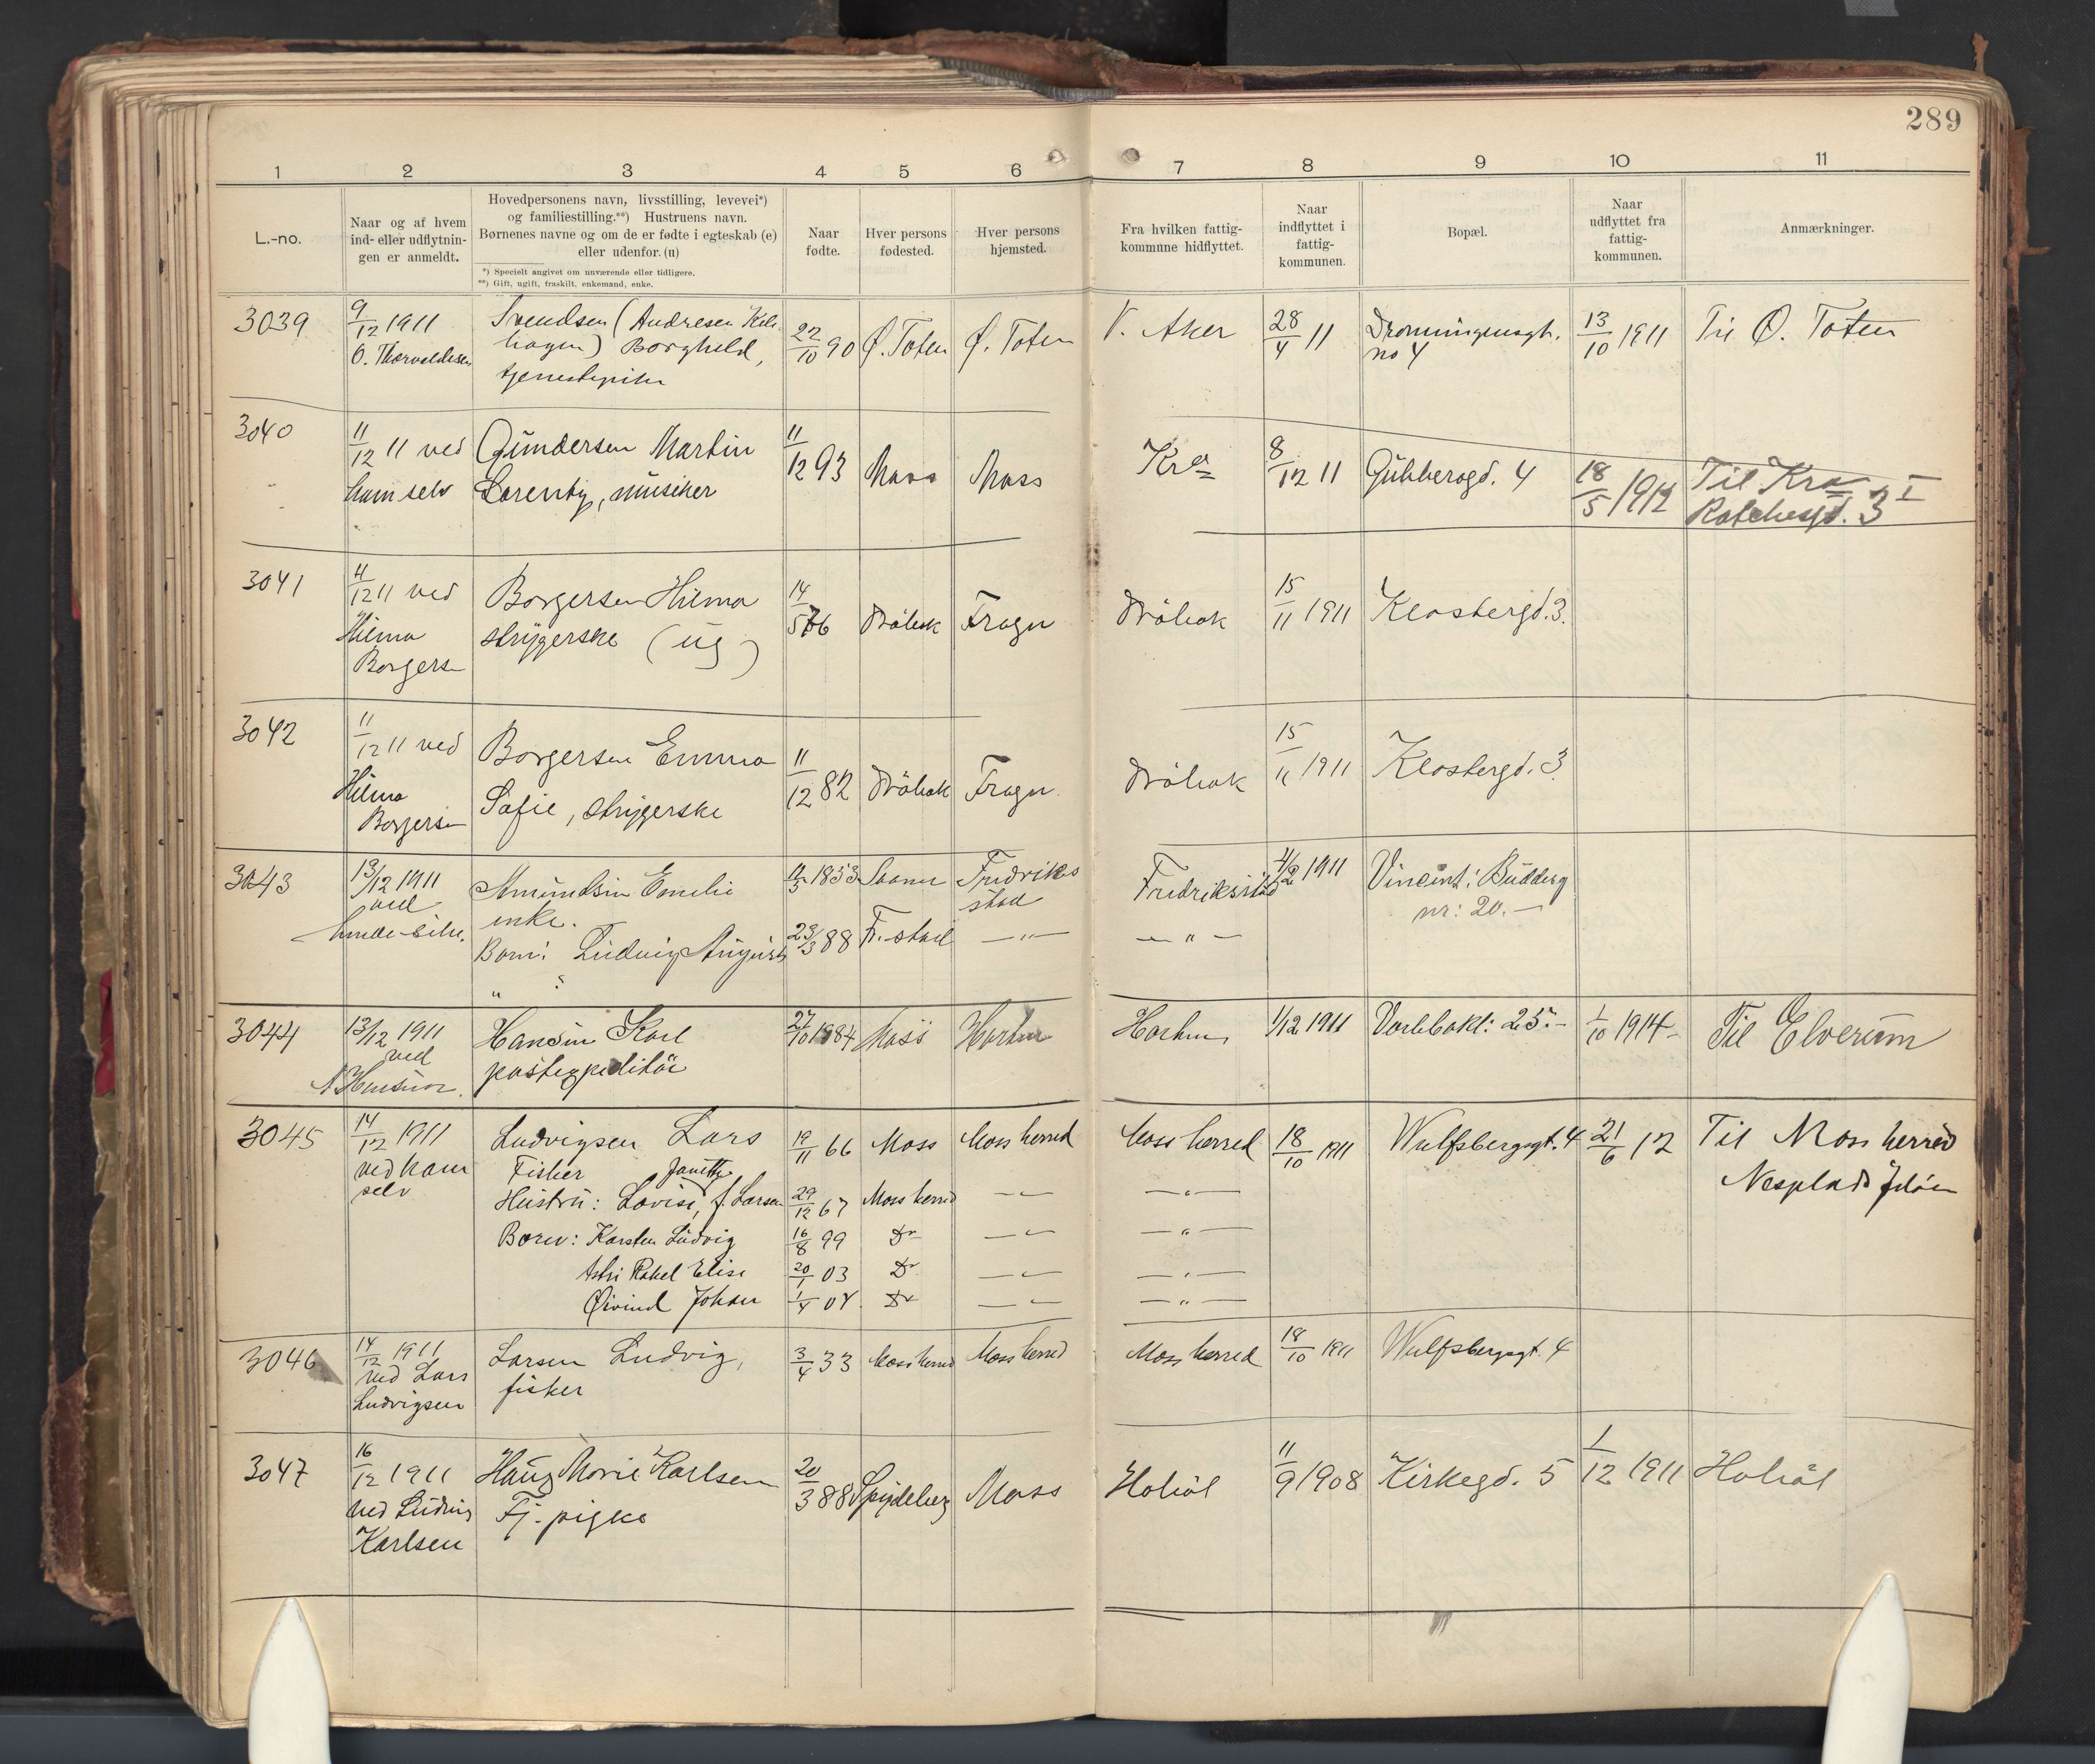 289
1 2 3 4 5 6 7 8 9 10 11
L.-no.
Naar og af hvem
ind- eller udflytnin-
gen er anmeldt.
Hovedpersonens navn, livsstilling, levevei*)
og familiestilling.**) Hustruens navn.
Børnenes navne og om de er fødte i egteskab (e)
eller udenfor. (u)
*) Specielt angivet om nuværende eller tidligere.
**) Gift, ugift, fraskilt, enkemand, enke.
Naar
fødte.
Hver persons
fødested.
Hver persons
hjemsted.
Fra hvilken fattig-
kommune hidflyttet.
Naar
indflyttet i
fattig-
kommunen.
Bopæl.
Naar
udflyttet fra
fattig-
kommunen.
Anmærkninger.
3039 9/12 1911 Svendsen (Andresen 22/10 90 Ø. Toten Ø. Toten V. Aker 28/4 11 Dronningensgt. 13/10 1911 Til Ø. Toten
O. Thorvaldsen hagen) Borghild, no 4
tjenestepike
3040 11/12 11 ved Gundersen Martin 11/12 93 Moss Moss Kra 8/12 11 Gubberogd. 4 18/5 1912 Til Kra
ham selv Lorentz, musiker 3 I
3041 11/12 11 ved Borgersen Hilma 14/5 Dröbak Frogn Dröbak 15/11 1911 Klostergd. 3.
Hilma strygerske (ug)
Borgersen
3042 11/12 11 ved Borgersen Emma 11/12 82 Dröbak Frogn Dröbak 15/11 1911 Klostergd. 3.
Hilma Sofie, strygerske
Borgersen
3043 13/12 1911 Amundsen Emilie 1853 Fredriks Fredriksstad 1911 Vincent: Buddesg
ved enke. stad nr: 20.-
hende selv. Born: Ludvig August 23/3 88 Fr. stad — " — — " —
" :
3044 13/12 1911 Hansen Karl 27/10 1884 Moss Horten Horten 1/12 1911 Varlebakk: 25.- 1/10 1914 Til Elverum
ved postexpeditör
3045 14/12 1911 Ludvigsen Lars 19/11 66 Moss Moss herred Moss herred 18/10 1911 Wulfsbergsgt. 4 21/6 12 Til Moss herred
ved ham Fisker Janette Nesplads Jeløen
selv Hustru: Lovise, f. Larsen 29/12 67 Moss herred — " — — " —
Børn: Karsten Ludvig 16/8 99 Do — " — — " —
Astri Rakel Elise 20/1 03 Do — " — — " —
Øivind Johan 1/4 07 Do — " — — " —
3046 14/12 1911 Larsen Ludvig, 3/4 33 Moss herred Moss herred Moss herred 18/10 1911 Wulfsbergsgt. 4
ved Lars fisker
Ludvigsen
3047 16/12 1911 Marie Karlsen 20/3 88 Spydeberg Moss Hobøl 11/9 1908 Kirkegd. 5 1/12 1911 Hobøl
ved Ludvig Tj. pige
Karlsen